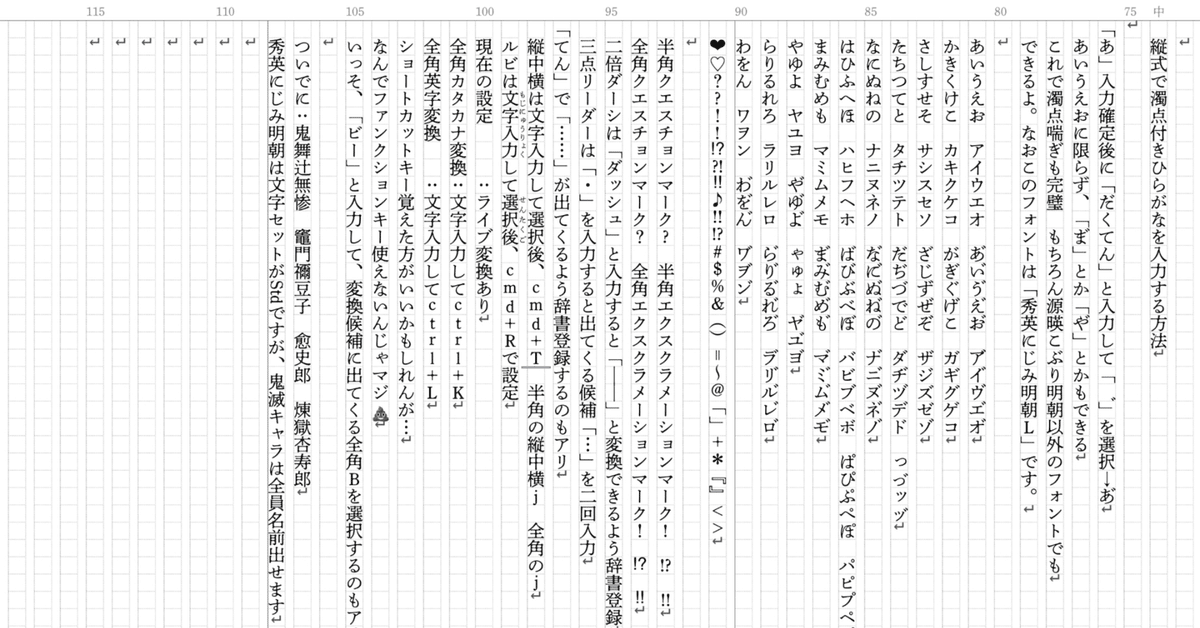 75 中 80 85 90 95 100 105 110 115
縦式で濁点付きひらがなを入力する方法↵
↵
「あ」入力確定後に「だくてん」と入力して「゛」を選択→あ゙↵
あいうえおに限らず、「ま゙」とか「や゙」とかもできる↵
これで濁点喘ぎも完璧　もちろん源暎こぶり明朝以外のフォントでも↵
できるよ。なおこのフォントは「秀英にじみ明朝L」です。↵
↵
あいうえお　アイウエオ　あ゙い゙ゔえ゙お゙　ア゙イ゙ヴエ゙オ゙↵
かきくけこ　カキクケコ　がぎぐげご　ガギグゲゴ↵
さしすせそ　サシスセソ　ざじずぜぞ　ザジズゼゾ↵
たちつてと　タチツテト　だぢづでど　ダヂヅデド　っ゙づッ゙ヅ↵
なにぬねの　ナニヌネノ　な゙に゙ぬ゙ね゙の゙　ナ゙ニ゙ヌ゙ネ゙ノ゙↵
はひふへほ　ハヒフヘホ　ばびぶべぼ　バビブベボ　ぱぴぷぺぽ　パピプペ
まみむめも　マミムメモ　ま゙み゙む゙め゙も゙　マ゙ミ゙ム゙メ゙モ゙↵
やゆよ　ヤユヨ　や゙ゆ゙よ゙　ゃゅょ　ヤ゙ユ゙ヨ゙↵
らりるれろ　ラリルレロ　ら゙り゙る゙れ゙ろ゙　ラ゙リ゙ル゙レ゙ロ゙↵
わをん　ワヲン　わ゙を゙ん゙　ヷヺン゙↵
❤♡？？！！⁉⁈‼♪‼⁉＃＄％＆（）＝〜＠「」＋＊『』＜＞↵
↵
半角クエスチョンマーク？　半角エクスクラメーションマーク！　⁉　‼↵
全角クエスチョンマーク？　全角エクスクラメーションマーク！　⁉　‼↵
二倍ダーシは「ダッシュ」と入力すると「――」と変換できるよう辞書登録
三点リーダーは「・」を入力すると出てくる候補「…」を二回入力↵
「てん」で「……」が出てくるよう辞書登録するのもアリ↵
縦中横は文字入力して選択後、ｃｍｄ＋Ｔ　半角の縦中横ｊ　全角のｊ↵
ルビは文字入力して選択後、ｃｍｄ＋Ｒで設定↵
もじにゅうりょく　せんたくご
現在の設定　　：ライブ変換あり↵
全角カタカナ変換：文字入力してｃｔｒｌ＋Ｋ↵
全角英字変換　　：文字入力してｃｔｒｌ＋Ｌ↵
ショートカットキー覚えた方がいいかもしれんが…↵
なんでファンクションキー使えないんじゃマジ💩↵
いっそ、「ビー」と入力して、変換候補に出てくる全角Ｂを選択するのもア
↵
ついでに：鬼舞辻無惨　竈門禰豆子　愈史郎　煉獄杏寿郎↵
秀英にじみ明朝は文字セットがStdですが、鬼滅キャラは全員名前出せます↵
↵
↵
↵
↵
↵
↵
↵